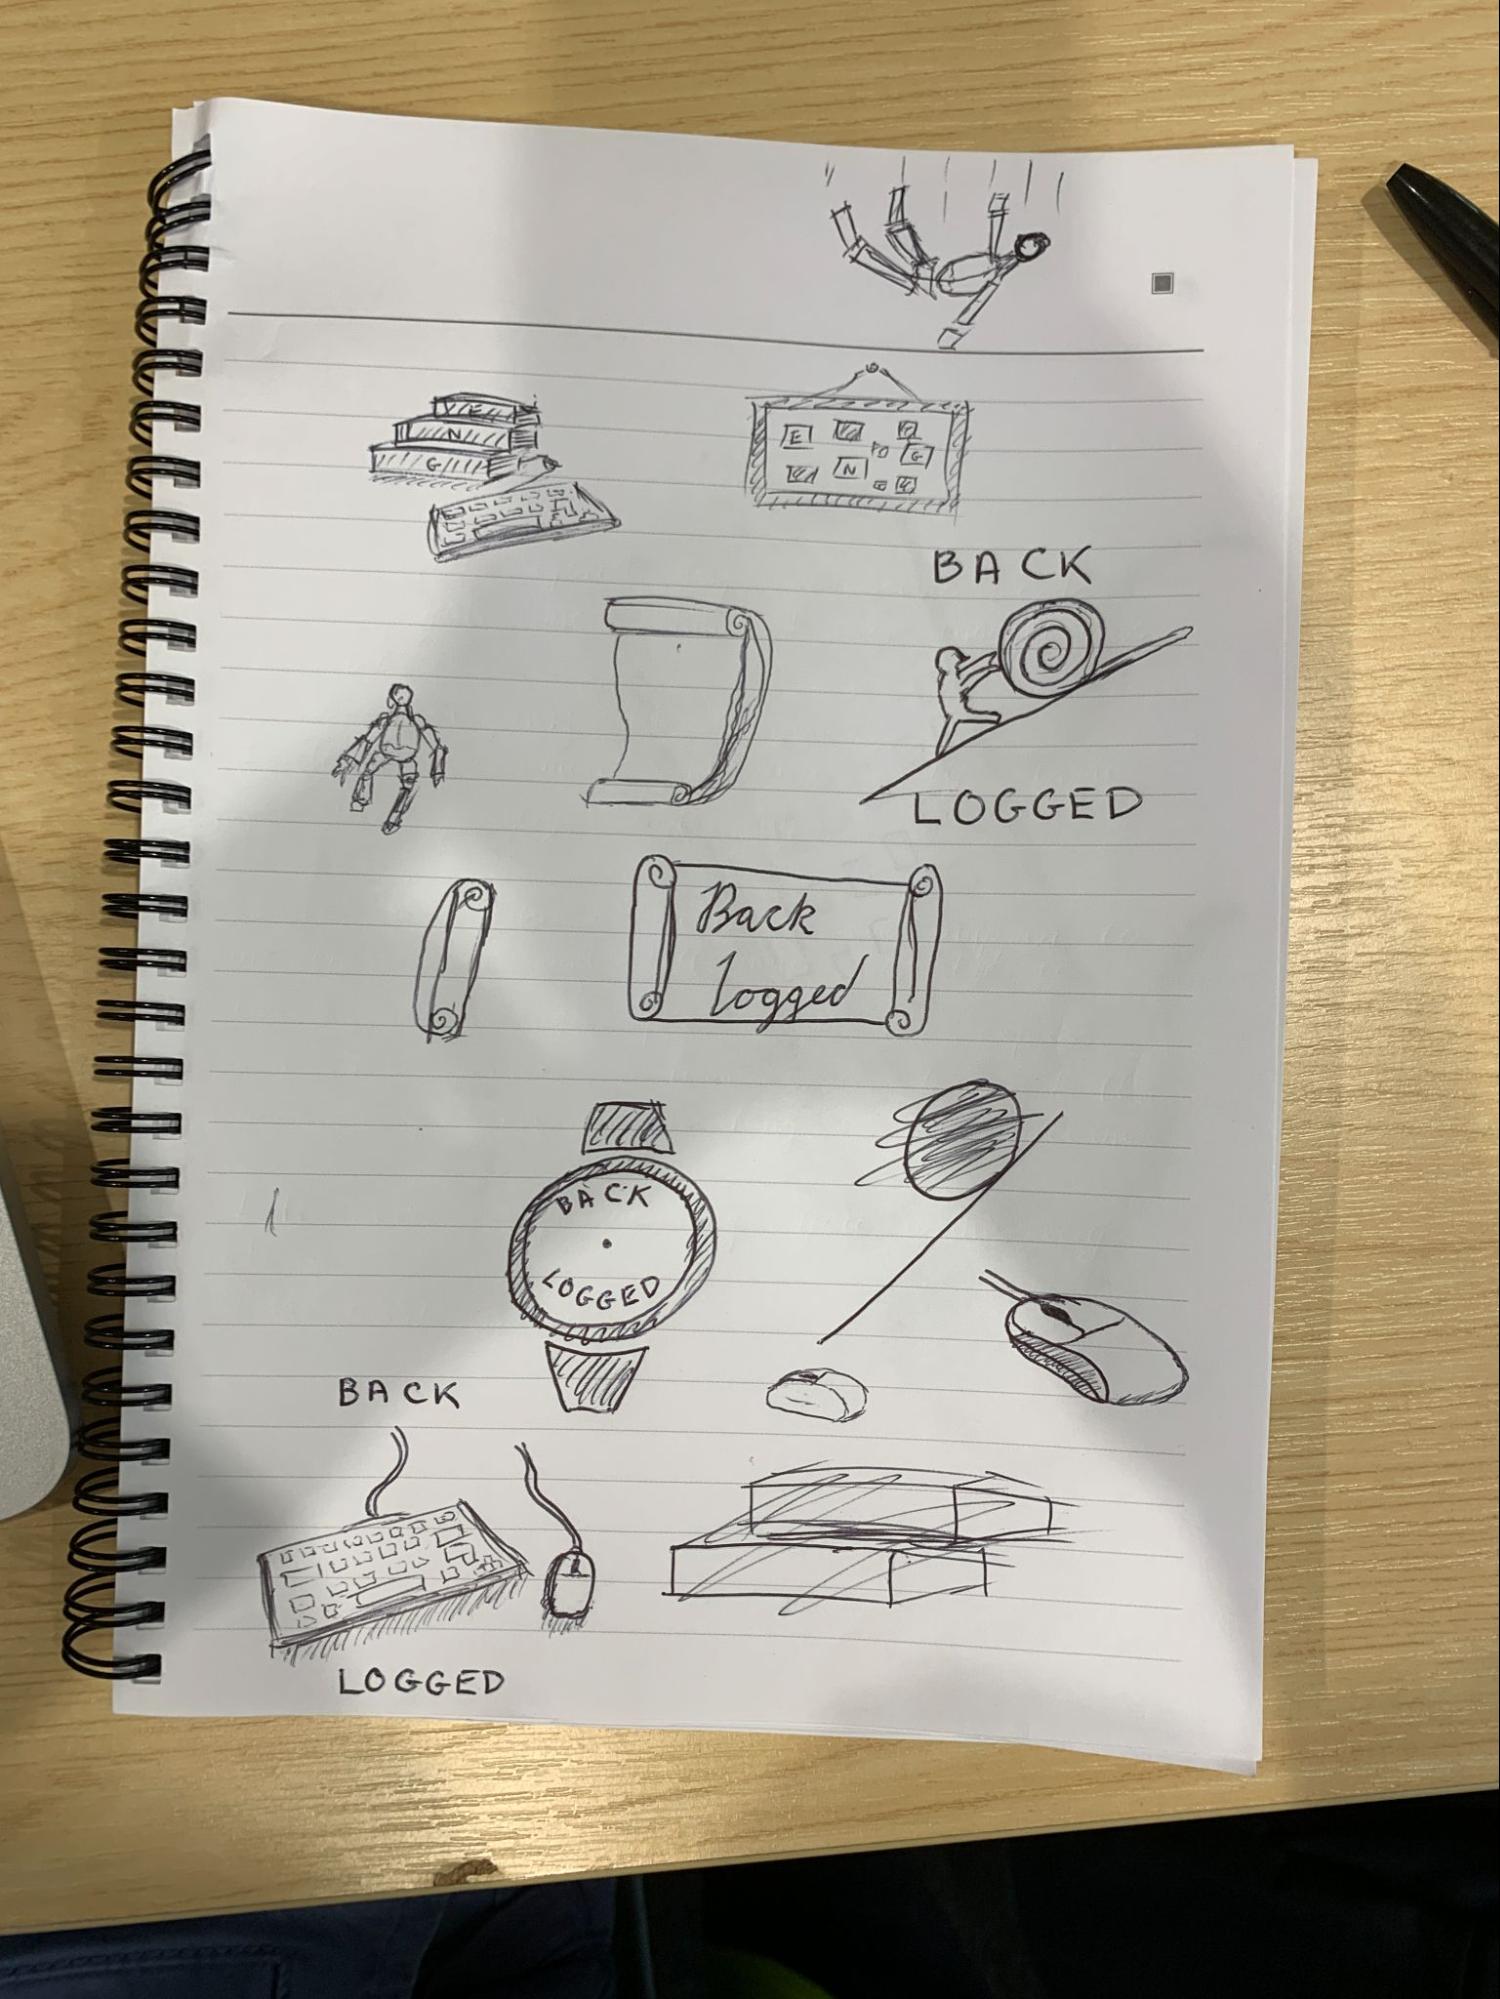 V E
N
G
E
N
G
BACK
LOGGED
Back
logged
BACK
LOGGED
BACK
LOGGED